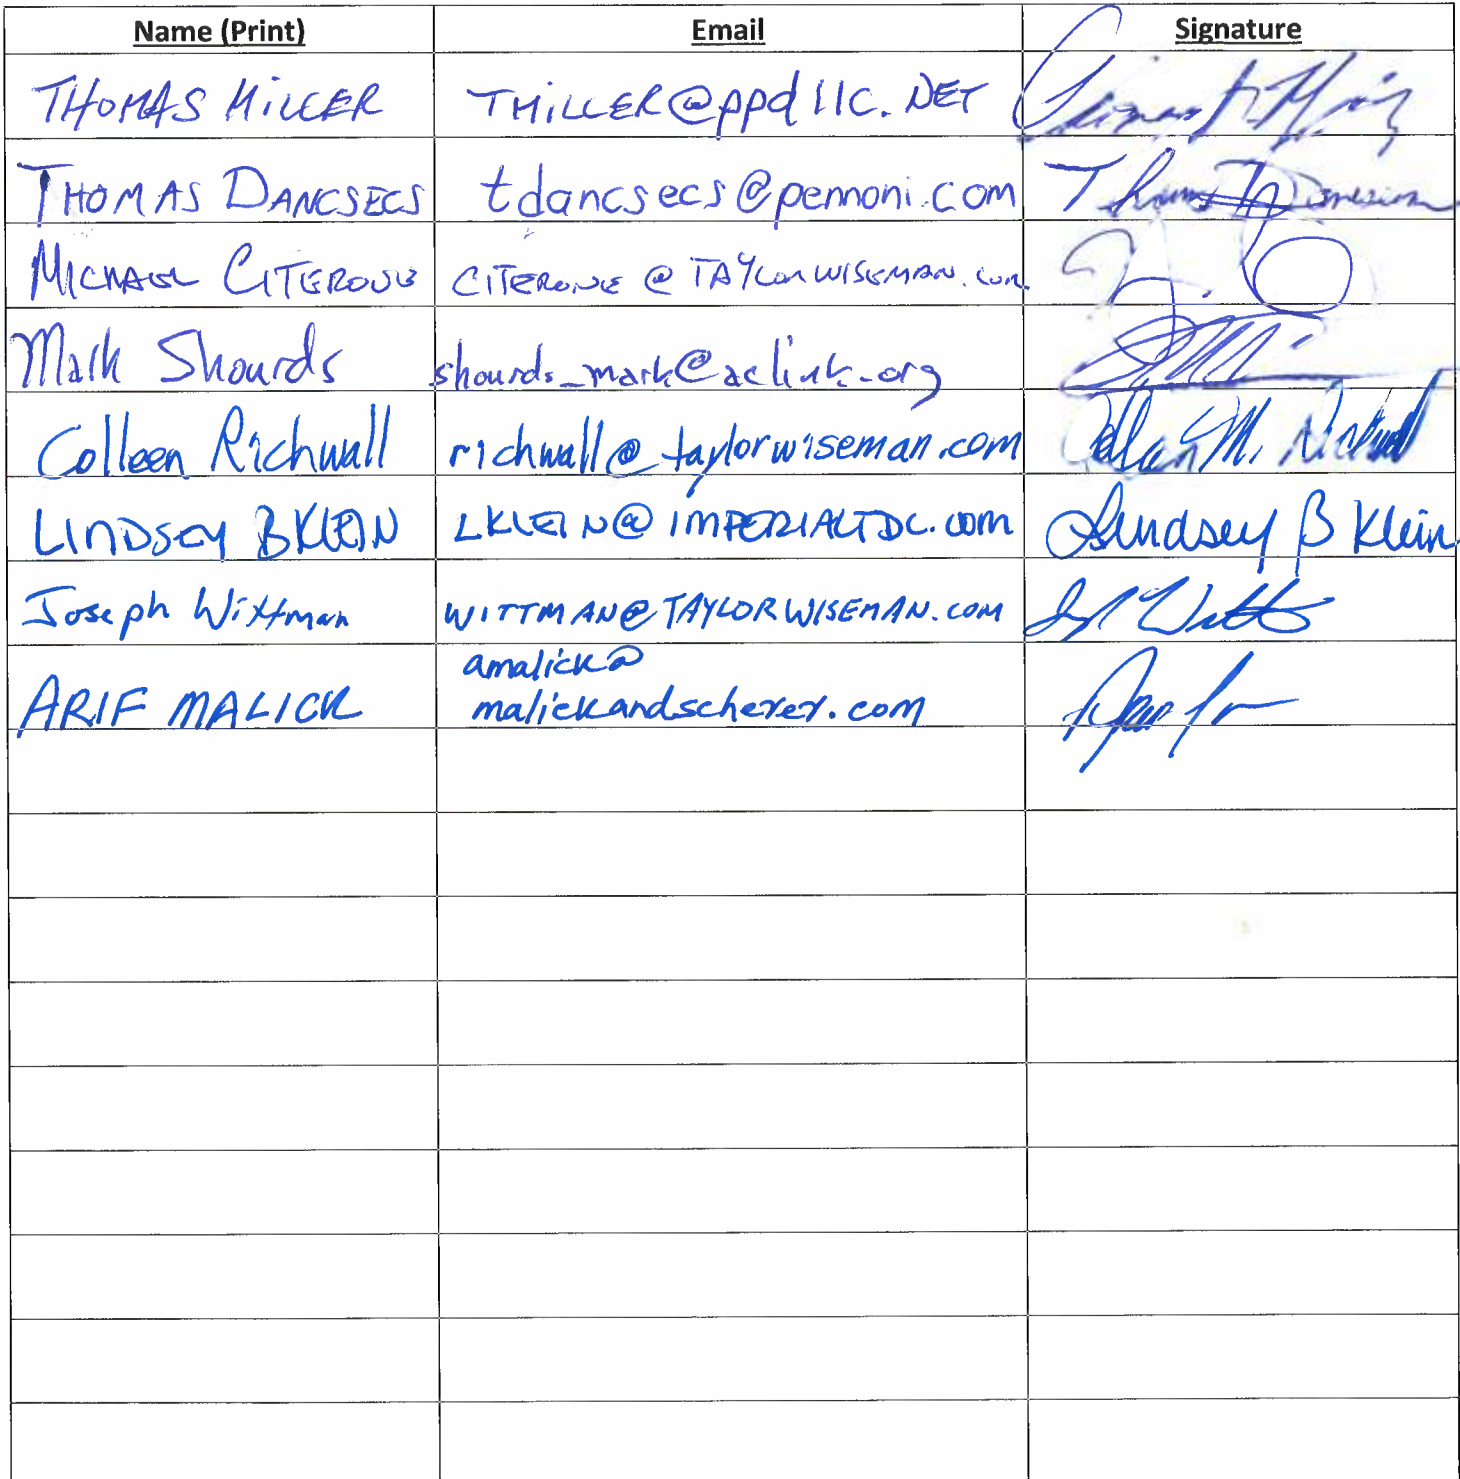 Name (Print) Email Signature
THOMAS MILLER TMILLER@ppdllc.NET
THOMAS DANCSECS tdancsecs@pennoni.com Thomas
MICHAEL CITERONE CITERONE@TAYLORWISEMAN.com
Mark Shourds shourds_mark@aclink.org
Colleen Richwall richwall@taylorwiseman.com Colleen M. Richwall
LINDSEY B KLEIN LKLEIN@IMPERIALTDC.com Lindsey B Klein
Joseph Wittman WITTMAN@TAYLORWISEMAN.COM
ARIF MALICK amalick@
malickandscherer.com